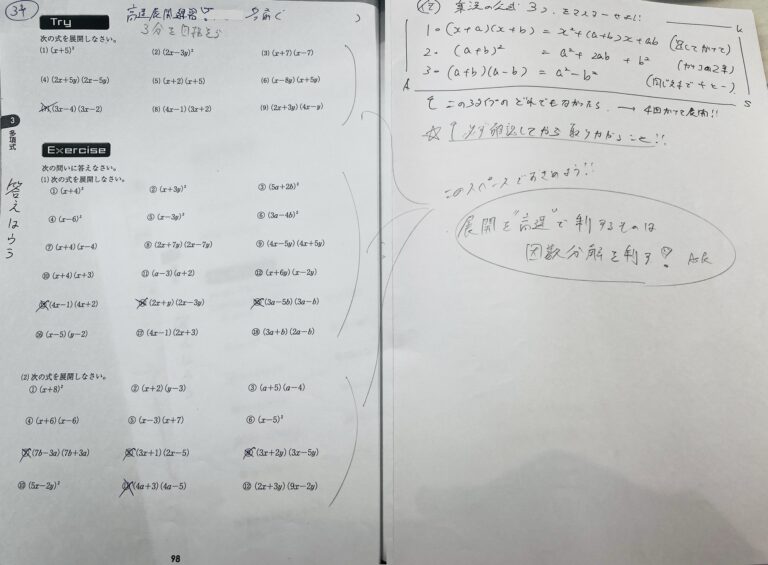 34
高速展開練習!
名前(
)
3分を目指そう
Try
次の式を展開しなさい。
(1) (x+5)² (2) (2x−3y)² (3) (x+7)(x−7)
(4) (2x+5y)(2x−5y) (5) (x+2)(x+5) (6) (x−8y)(x+5y)
(3x−4)(3x−2) (8) (4x−1)(3x+2) (9) (2x+3y)(4x−y)
3 多項式
答えはウラ
Exercise
次の問いに答えなさい。
(1) 次の式を展開しなさい。
① (x+4)² ② (x+3y)² ③ (5a+2b)²
④ (x−6)² ⑤ (x−3y)² ⑥ (3a−4b)²
⑦ (x+4)(x−4) ⑧ (2x+7y)(2x−7y) ⑨ (4x−5y)(4x+5y)
⑩ (x+4)(x+3) ⑪ (a−3)(a+2) ⑫ (x+6y)(x−2y)
(4x−1)(4x+2) (2x+y)(2x−3y) (3a−5b)(3a−b)
⑯ (x−5)(y−2) ⑰ (4x−1)(2x+3) ⑱ (3a+b)(2a−b)
(2) 次の式を展開しなさい。
① (x+8)² ② (x+2)(y−3) ③ (a+5)(a−4)
④ (x+6)(x−6) ⑤ (x−3)(x+7) ⑥ (x−5)²
(7b−3a)(7b+3a) (3x+1)(2x−5) (3x+2y)(3x−5y)
⑩ (5x−2y)² (4a+3)(4a−5) ⑫ (2x+3y)(9x−2y)
98
乗法の公式 3つ、をマスターせよ!!
1。(x+a)(x+b) = x²+(a+b)x+ab (足してかけて)
2。(a+b)² = a²+2ab+b² (かっこの2乗)
3。(a+b)(a−b) = a²−b²
この3タイプのどれでもなかったら、→ 4回かけて展開!!
必ず確認してから取りかかること!!
このスペースでおさめよう!!
展開を"高速"で制するものは
因数分解を制す!